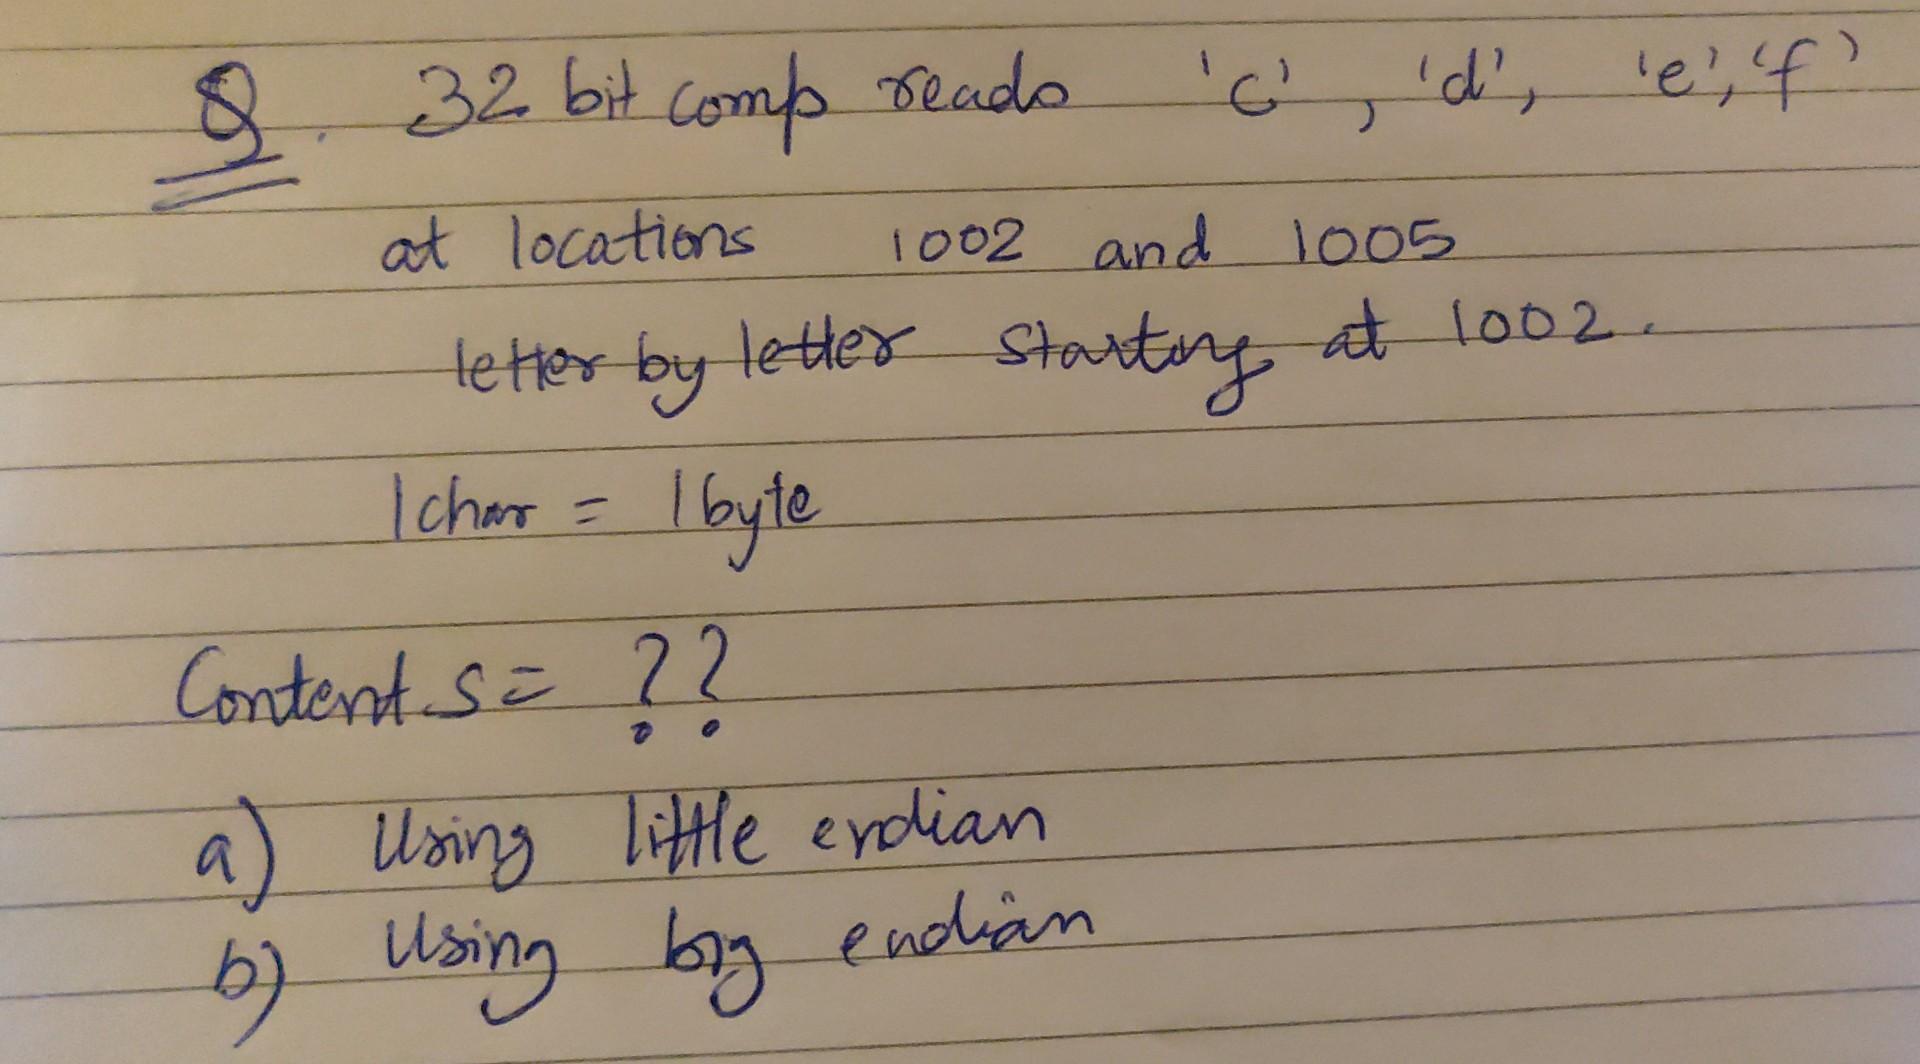 Q. 32 bit comp reads 'c', 'd', 'e', 'f'
at locations 1002 and 1005
letter by letter starting at 1002.
1 char = 1 byte
Contents = ??
a) Using little endian
b) Using big endian